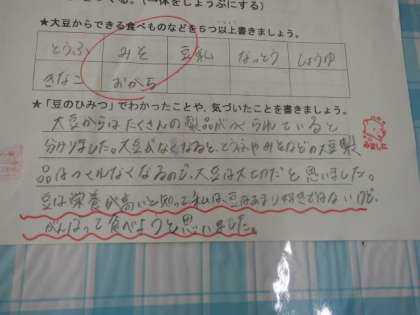 (一体をしょうぶにする)
★大豆からできる食べものなどを5つ以上書きましょう。
とうふ みそ 豆乳 なっとう しょうゆ
きなこ おから
★「豆のひみつ」でわかったことや、気づいたことを書きましょう。
大豆からはたくさんの製品がつくられていると
分かりました。大豆がなくなると、とうふやみそなどの大豆製
品はつくれなくなるので、大豆は大切だと思いました。
豆は栄養が高いと知って私は、豆はあまり好きではないけど、
がんばって食べようと思いました。
みました